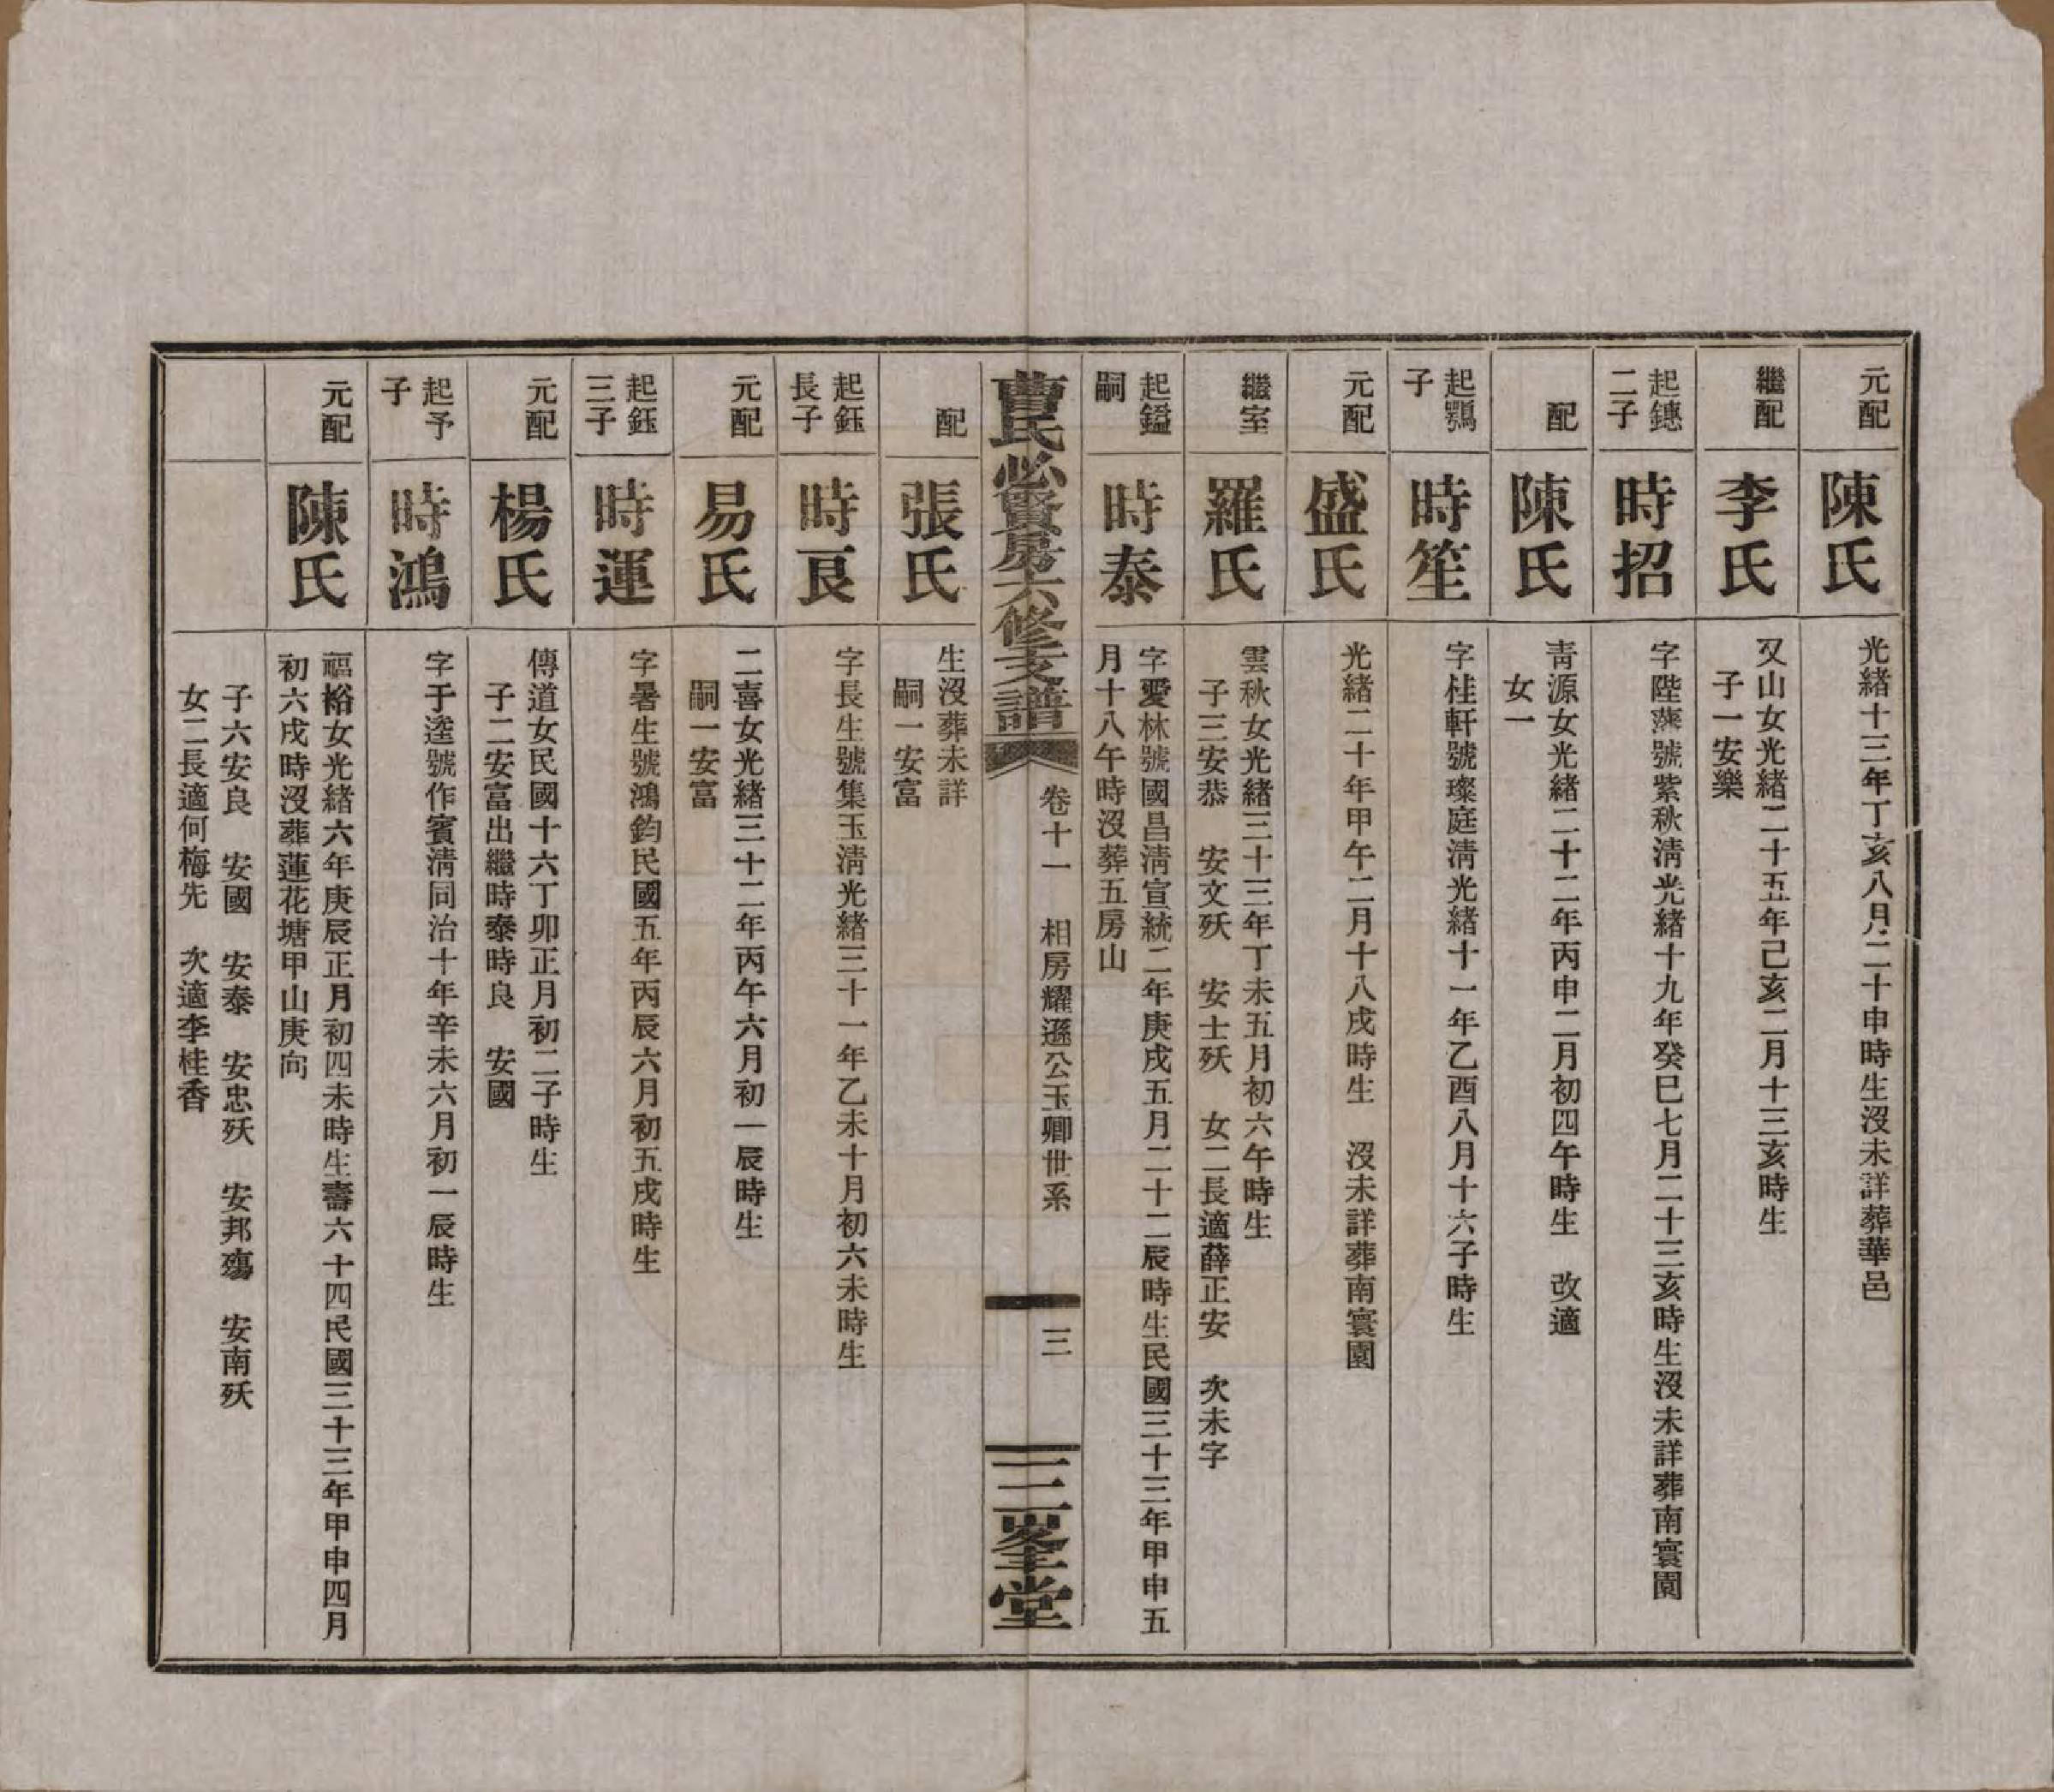 元配
陳氏
光緒十三年丁亥八月二十申時生沒未詳葬華邑
繼配
李氏
又山女光緒二十五年己亥二月十三亥時生
子一安樂
起鏸
二子
時招
字陛蓀號紫秋淸光緒十九年癸巳七月二十三亥時生沒未詳葬南寰園
配
陳氏
靑源女光緒二十二年丙申二月初四午時生　改適
女一
起鶚
子
時笙
字桂軒號璨庭淸光緒十一年乙酉八月十六子時生
元配
盛氏
光緒二十年甲午二月十八戌時生　沒未詳葬南寰園
繼室
羅氏
雲秋女光緒三十三年丁未五月初六午時生
子三安恭　安文殀　安士殀　女二長適薛正安　次未字
起鎰
嗣
時泰
字愛林號國昌淸宣統二年庚戌五月二十二辰時生民國三十三年甲申五
月十八午時沒葬五房山
曹氏必賢房六修支譜
卷十一　相房耀遜公玉卿世系
三
三峯堂
配
張氏
生沒葬未詳
嗣一安富
起鈺
長子
時良
字長生號集玉淸光緒三十一年乙未十月初六未時生
元配
易氏
二喜女光緒三十二年丙午六月初一辰時生
嗣一安富
起鈺
三子
時運
字暑生號鴻鈞民國五年丙辰六月初五戌時生
元配
楊氏
傳道女民國十六丁卯正月初二子時生
子二安富出繼時泰時良　安國
起予
子
時鴻
字于逵號作賓淸同治十年辛未六月初一辰時生
元配
陳氏
福裕女光緒六年庚辰正月初四未時生壽六十四民國三十三年甲申四月
初六戌時沒葬蓮花塘甲山庚向
子六安良　安國　安泰　安忠殀　安邦殤　安南殀
女二長適何梅先　次適李桂香